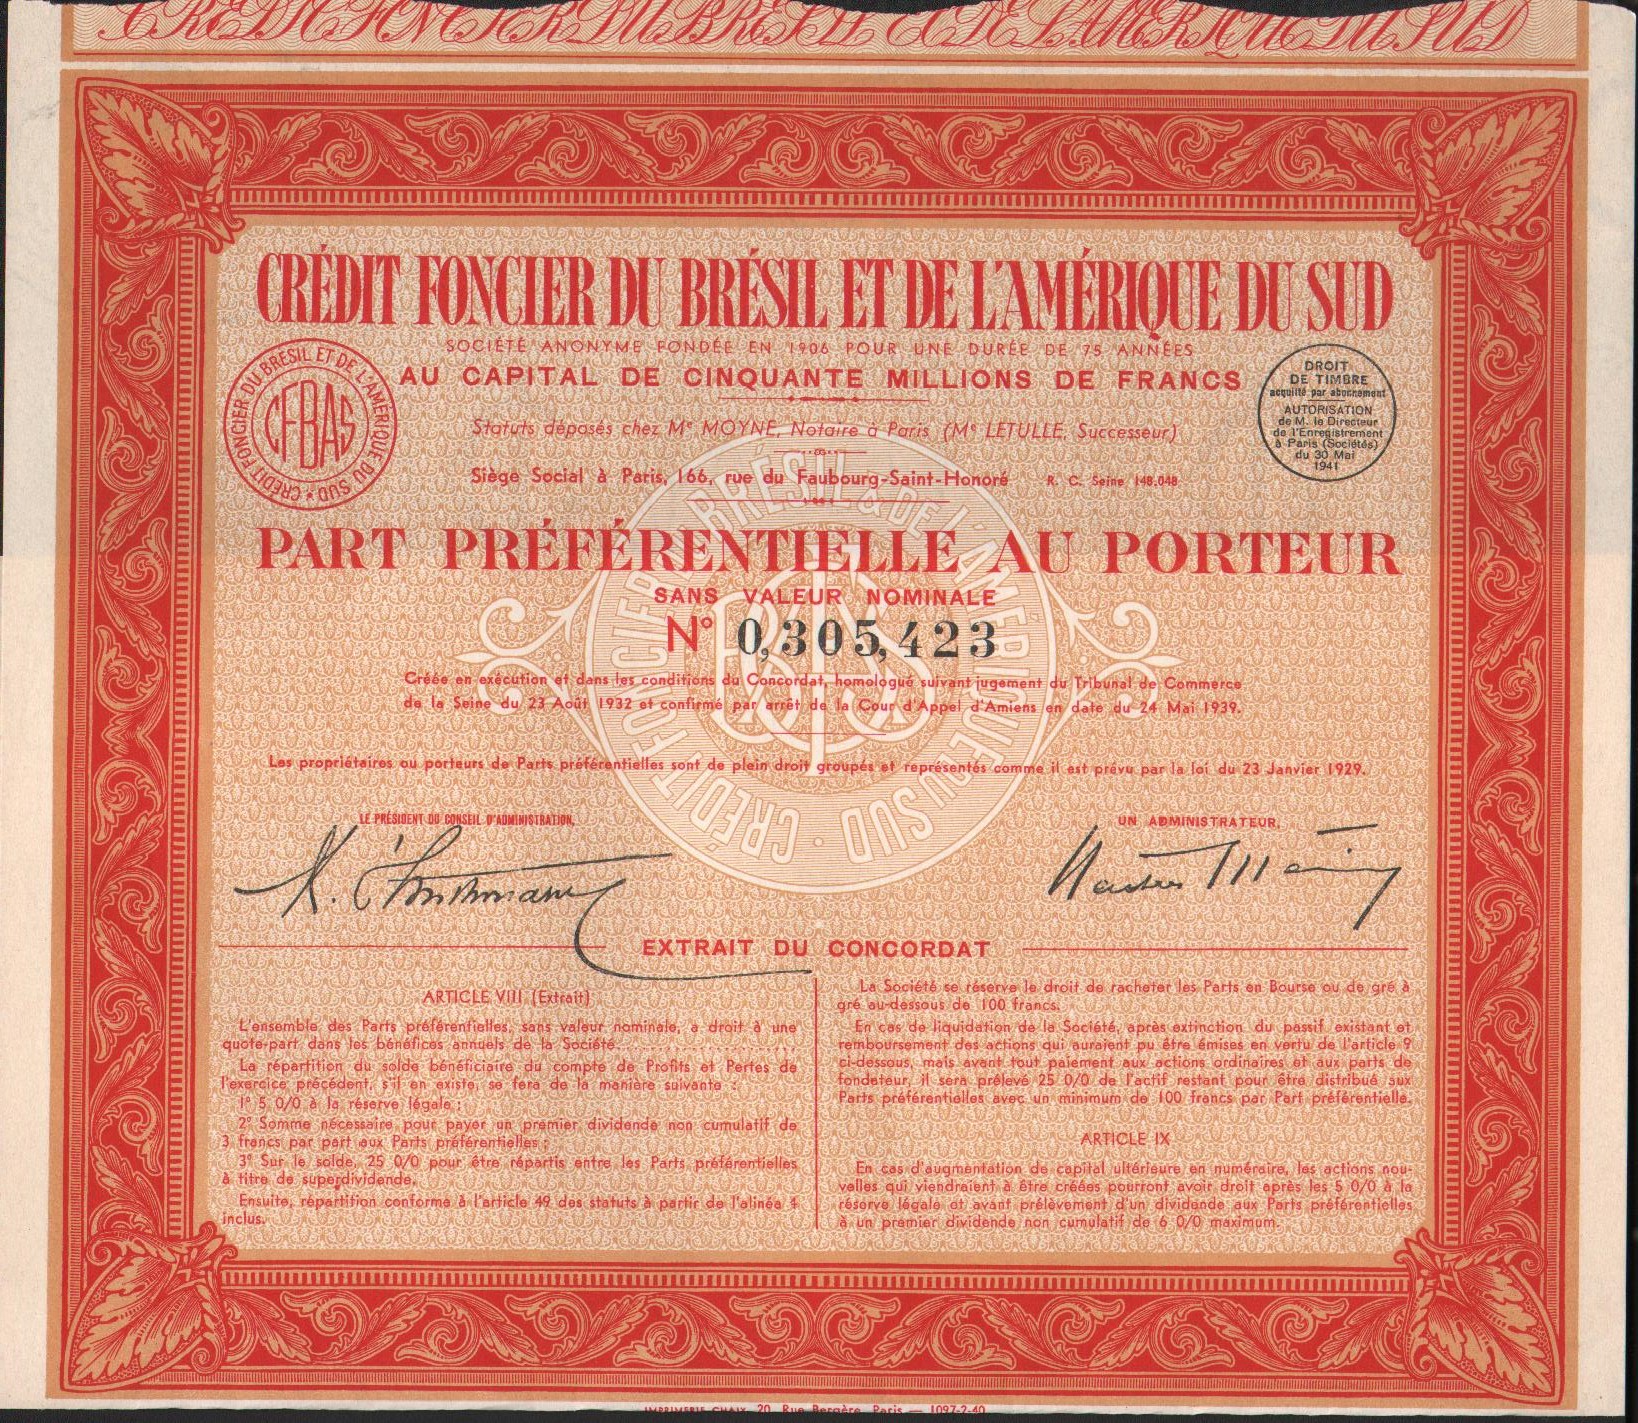 CRÉDIT FONCIER DU BRÉSIL ET DE L'AMÉRIQUE DU SUD
CRÉDIT FONCIER DU BRÉSIL ET DE L'AMÉRIQUE DU SUD
SOCIÉTÉ ANONYME FONDÉE EN 1906 POUR UNE DURÉE DE 75 ANNÉES
AU CAPITAL DE CINQUANTE MILLIONS DE FRANCS
CRÉDIT FONCIER DU BRÉSIL ET DE L'AMÉRIQUE DU SUD
CFBAS
DROIT
DE TIMBRE
acquitté par abonnement
AUTORISATION
de M. le Directeur
de l'Enregistrement
à Paris (Sociétés)
du 30 Mai
1941
Statuts déposés chez Me MOYNE, Notaire à Paris (Me LETULLE, Successeur)
Siège Social à Paris, 166, rue du Faubourg-Saint-Honoré R. C. Seine 148.048
PART PRÉFÉRENTIELLE AU PORTEUR
SANS VALEUR NOMINALE
N° 0,305,423
CRÉDIT FONCIER DU BRÉSIL & DE L'AMÉRIQUE DU SUD
Créée en exécution et dans les conditions du Concordat, homologué suivant jugement du Tribunal de Commerce
de la Seine du 23 Août 1932 et confirmé par arrêt de la Cour d'Appel d'Amiens en date du 24 Mai 1939.
Les propriétaires ou porteurs de Parts préférentielles sont de plein droit groupés et représentés comme il est prévu par la loi du 23 Janvier 1929.
LE PRÉSIDENT DU CONSEIL D'ADMINISTRATION,
UN ADMINISTRATEUR,
EXTRAIT DU CONCORDAT
ARTICLE VIII (Extrait)
L'ensemble des Parts préférentielles, sans valeur nominale, a droit à une
quote-part dans les bénéfices annuels de la Société..............................
La répartition du solde bénéficiaire du compte de Profits et Pertes de
l'exercice précédent, s'il en existe, se fera de la manière suivante :
1° 5 0/0 à la réserve légale ;
2° Somme nécessaire pour payer un premier dividende non cumulatif de
3 francs par part aux Parts préférentielles ;
3° Sur le solde, 25 0/0 pour être répartis entre les Parts préférentielles
à titre de superdividende.
Ensuite, répartition conforme à l'article 49 des statuts à partir de l'alinéa 4
inclus.
La Société se réserve le droit de racheter les Parts en Bourse ou de gré à
gré au-dessous de 100 francs.
En cas de liquidation de la Société, après extinction du passif existant et
remboursement des actions qui auraient pu être émises en vertu de l'article 9
ci-dessous, mais avant tout paiement aux actions ordinaires et aux parts de
fondateur, il sera prélevé 25 0/0 de l'actif restant pour être distribué aux
Parts préférentielles avec un minimum de 100 francs par Part préférentielle.
ARTICLE IX
En cas d'augmentation de capital ultérieure en numéraire, les actions nou-
velles qui viendraient à être créées pourront avoir droit après les 5 0/0 à la
réserve légale et avant prélèvement d'un dividende aux Parts préférentielles
à un premier dividende non cumulatif de 6 0/0 maximum.
IMPRIMERIE CHAIX, 20, Rue Bergère, Paris. — 1097-2-40